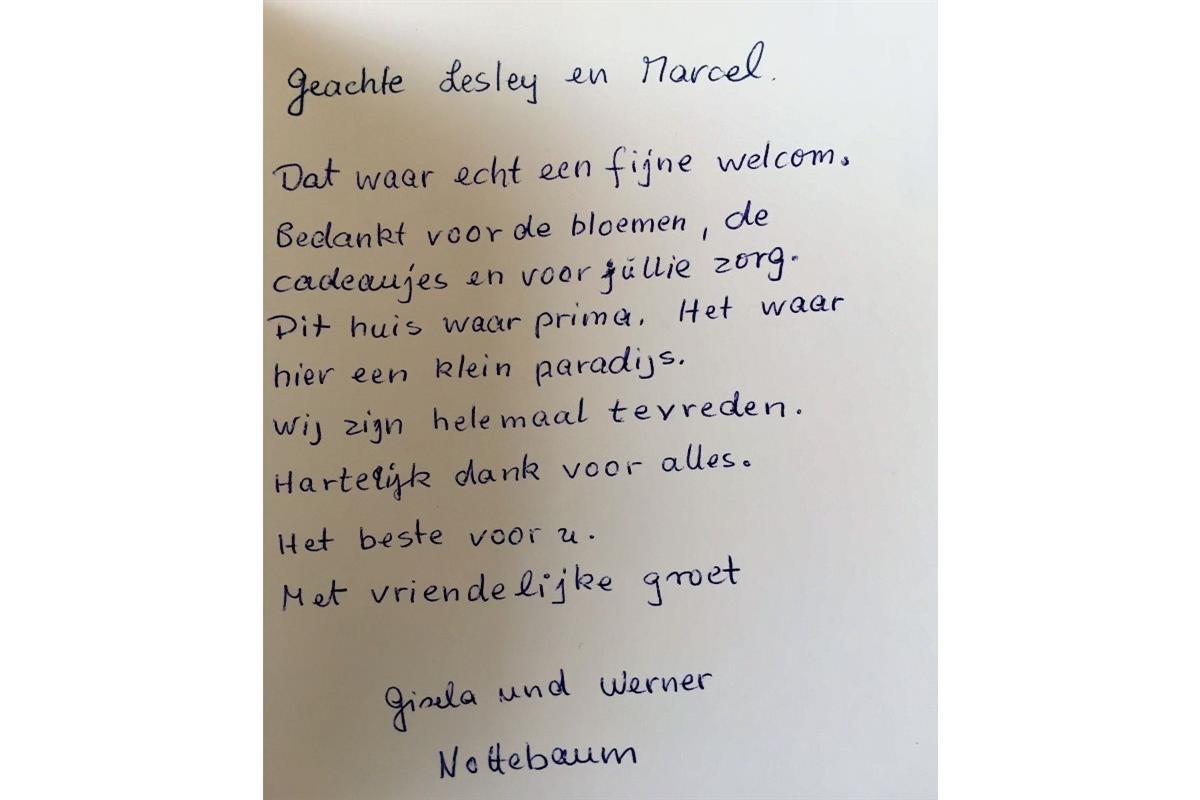 Geachte Lesley en Marcel.
Dat waar echt een fijne welcom.
Bedankt voor de bloemen, de
cadeaujes en voor jüllie zorg.
Dit huis waar prima. Het waar
hier een klein paradijs.
Wij zijn helemaal tevreden.
Hartelijk dank voor alles.
Het beste voor u.
Met vriendelijke groet
Gisela und Werner
Nottebaum